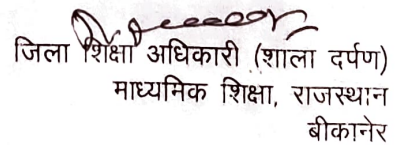 जिला शिक्षा अधिकारी (शाला दर्पण)
माध्यमिक शिक्षा, राजस्थान
बीकानेर